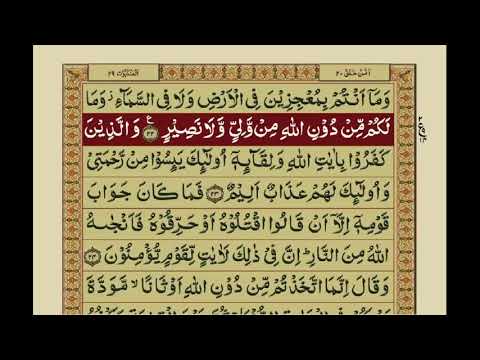 اَمَّنْ خَلَقَ ٢٠
الْعَنْكَبُوْت ٢٩
وَمَاۤ اَنْتُمْ بِمُعْجِزِيْنَ فِى الْاَرْضِ وَلَا فِى السَّمَآءِ ؗ وَمَا
لَكُمْ مِّنْ دُوْنِ اللّٰهِ مِنْ وَّلِىٍّ وَّلَا نَصِيْرٍ ﴿٢٢﴾ وَالَّذِيْنَ
كَفَرُوْا بِاٰيٰتِ اللّٰهِ وَلِقَآئِهٖۤ اُولٰٓئِكَ يَئِسُوْا مِنْ رَّحْمَتِىْ
وَاُولٰٓئِكَ لَهُمْ عَذَابٌ اَلِيْمٌ ﴿٢٣﴾ فَمَا كَانَ جَوَابَ
قَوْمِهٖۤ اِلَّاۤ اَنْ قَالُوا اقْتُلُوْهُ اَوْ حَرِّقُوْهُ فَاَنْجٰىهُ
اللّٰهُ مِنَ النَّارِ ؕ اِنَّ فِىْ ذٰلِكَ لَاٰيٰتٍ لِّقَوْمٍ يُّؤْمِنُوْنَ ﴿٢٤﴾
وَقَالَ اِنَّمَا اتَّخَذْتُمْ مِّنْ دُوْنِ اللّٰهِ اَوْثَانًا ۙ مَّوَدَّةَ